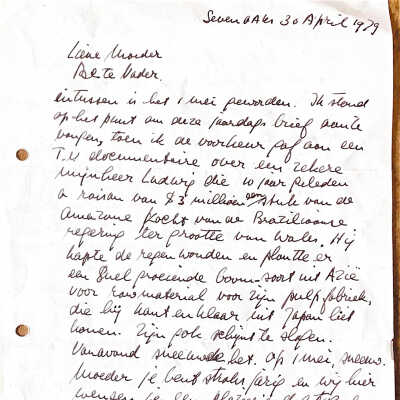 Sevenoaks 30 April 1979
Lieve Moeder
Beste Vader.
intussen is het 1 mei geworden. Ik stond
op het punt om deze jaardags brief aan te
vangen, toen ik de voorkeur gaf aan een
T.V. documentaire over een zekere
mijnheer Ludwig die 10 jaar geleden
a raison van $3 million een stuk van de
Amazone kocht van de Braziliaanse
regering ter grootte van Wales. Hij
kapte de regenwouden en plantte er
een snel groeiende boom-soort uit Azië
voor raw material voor zijn pulp fabriek,
die hij kant en klaar uit Japan liet
komen. Zijn gok schijnt te slagen.
Vanavond sneeuwde het. Op 1 mei, sneeuw.
Moeder je bent straks jarig en wij hier
wensen je een